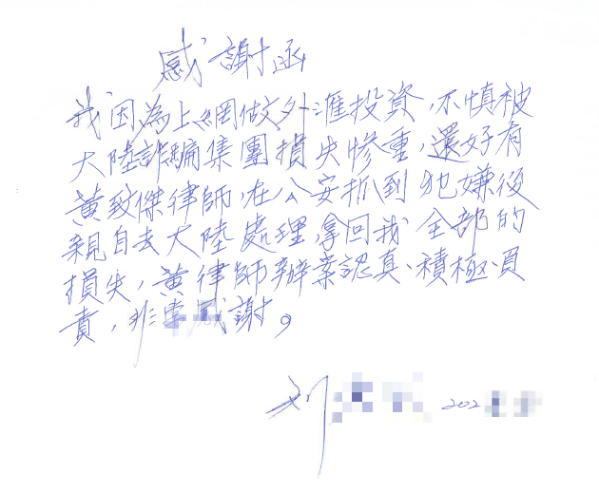 感謝函
我因為上網做外匯投資,不慎被
大陸詐騙集團損失慘重,還好有
黃致傑律師,在公安抓到犯嫌後
親自去大陸處理,拿回我全部的
損失,黃律師辦案認真、積極、負
責,非常感謝。
刘 202